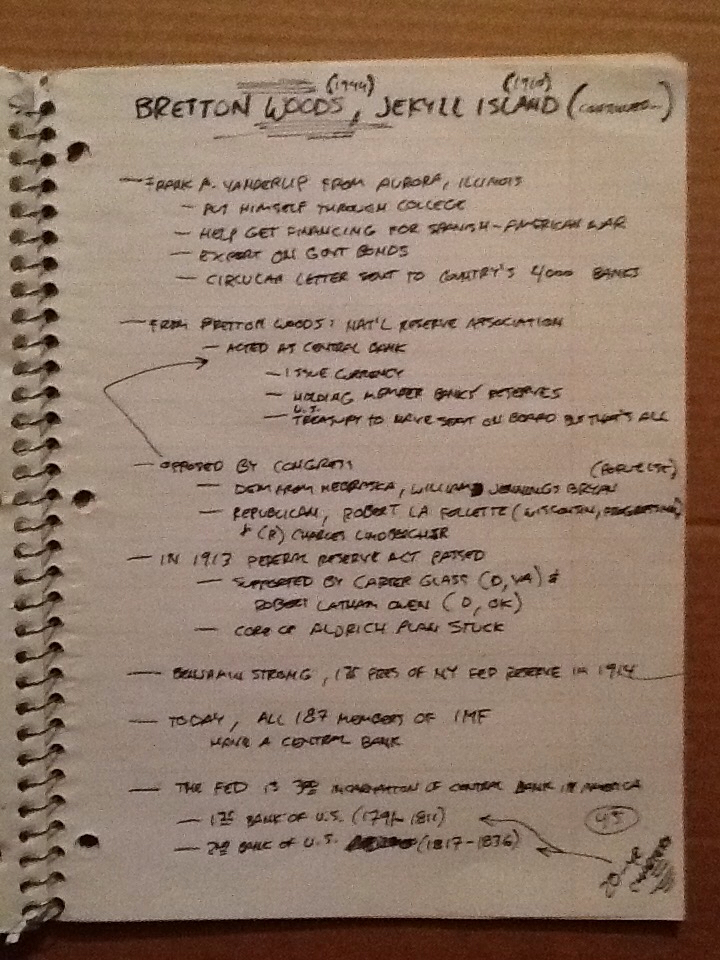 (1944) (1910)
BRETTON WOODS, JEKYLL ISLAND (CONTINUED...)
— FRANK A. VANDERLIP FROM AURORA, ILLINOIS
— PUT HIMSELF THROUGH COLLEGE
— HELP GET FINANCING FOR SPANISH-AMERICAN WAR
— EXPERT ON GOVT BONDS
— CIRCULAR LETTER SENT TO COUNTRY'S 4000 BANKS
— FROM BRETTON WOODS: NAT'L RESERVE ASSOCIATION
— ACTED AS CENTRAL BANK
— ISSUE CURRENCY
— HOLDING MEMBER BANKS' RESERVES
— U.S. TREASURY TO HAVE SEAT ON BOARD BUT THAT'S ALL
— OPPOSED BY CONGRESS
(POPULIST)
— DEM FROM NEBRASKA, WILLIAM JENNINGS BRYAN
— REPUBLICAN, ROBERT LA FOLLETTE (WISCONSIN, PROGRESSIVE)
& (R) CHARLES LINDBERGH SR
— IN 1913 FEDERAL RESERVE ACT PASSED
— SUPPORTED BY CARTER GLASS (D, VA) &
ROBERT LATHAM OWEN (D, OK)
— CORE OF ALDRICH PLAN STUCK
— BENJAMIN STRONG, 1ST PRES OF NY FED RESERVE IN 1914
— TODAY, ALL 187 MEMBERS OF IMF
HAVE A CENTRAL BANK
— THE FED IS 3RD INCARNATION OF CENTRAL BANK IN AMERICA
— 1ST BANK OF U.S. (1791-1811)
45
— 2ND BANK OF U.S. (1817-1836)
20-YR CHARTERS